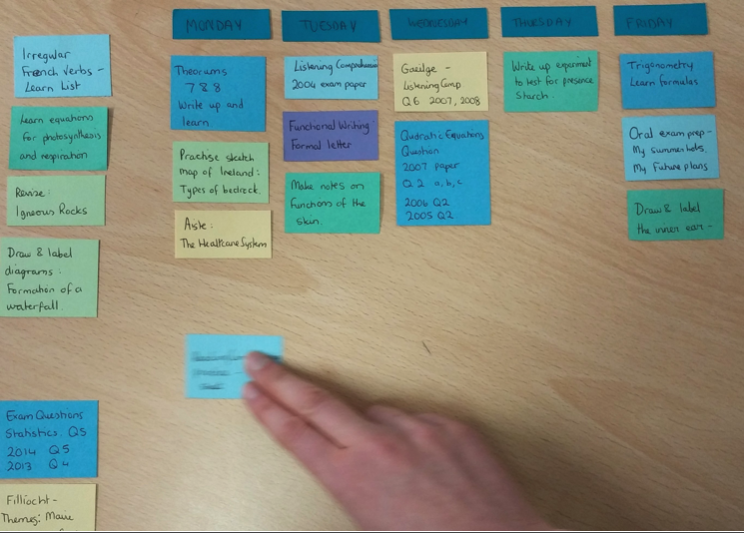 MONDAY
TUESDAY
WEDNESDAY
THURSDAY
FRIDAY
Irregular
French Verbs -
Learn List
Learn equations
for photosynthesis
and respiration
Revise:
Igneous Rocks
Draw & label
diagrams:
Formation of a
waterfall
Exam Questions
Statistics. Q5
2014 Q5
2013 Q4
Filíocht -
Themes: Maire
Theorums
7 & 8
Write up and
learn
Practise sketch
map of Ireland:
Types of bedrock.
Aiste:
The Healthcare System
Listening Comprehension
2004 exam paper
Functional Writing
Formal letter
Make notes on
functions of the
skin.
Gaeilge -
Listening Comp
Q6 2007, 2008
Qudratic Equations
Question
2007 paper
Q2 a, b, c
2006 Q2
2005 Q2
Write up experiment
to test for presence
Starch.
Trigonometry
Learn formulas
Oral exam prep -
My summer hols,
My Future plans
Draw & label
the inner ear -